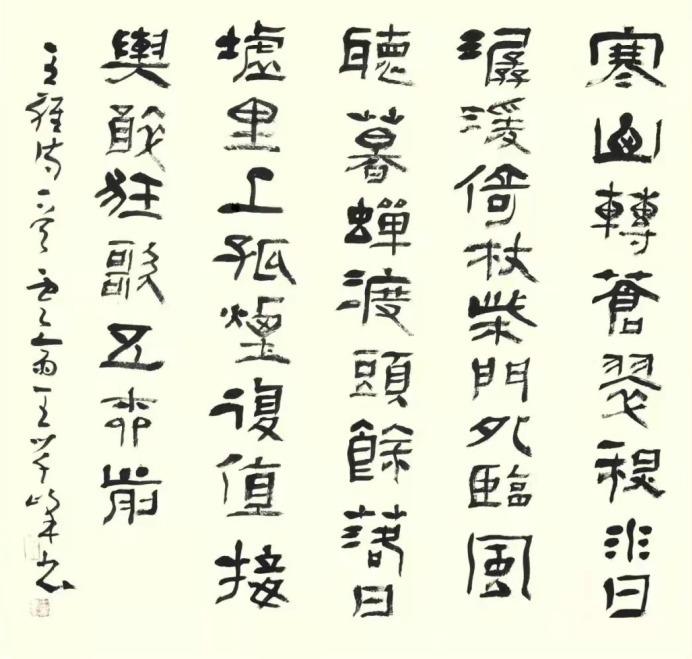 寒山轉蒼翠秋水日
潺湲倚杖柴門外臨風
聽暮蟬渡頭餘落日
墟里上孤煙復值接
輿醉狂歌五柳前
王維詩一首 王